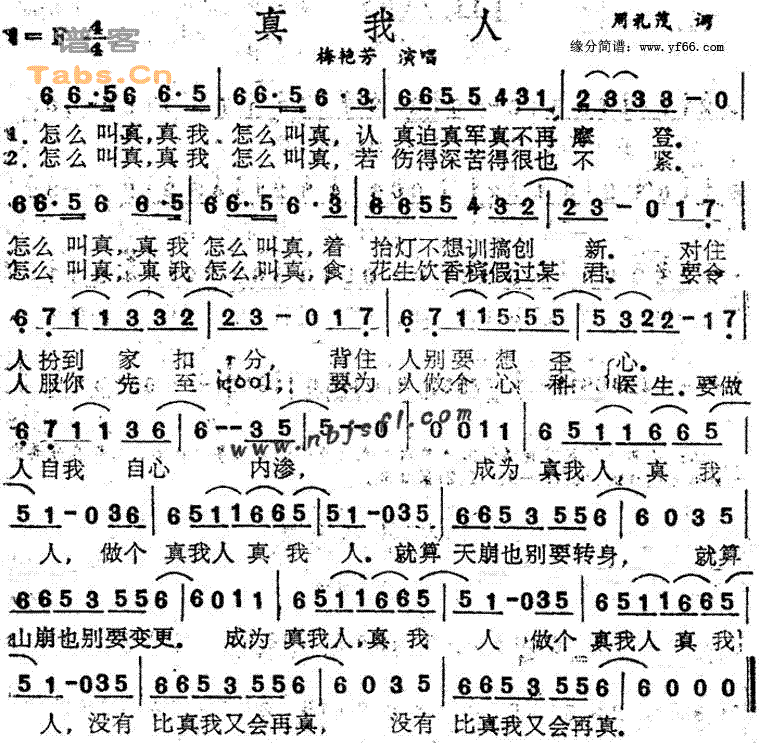 真 我 人
1=F 4/4
谱客
Tabs.Cn
周礼茂 词
缘分简谱：www.yf66.com
梅艳芳 演唱
6 6 6·5 6 6·5 | 6 6·5 6·3 | 6 6 5 5 4 3 1 | 2 3 3 3 - 0
1. 怎么叫真,真我 怎么叫真,认 真迫真军真不再摩 登.
2. 怎么叫真,真我 怎么叫真,若 伤得深苦得很也不 紧.
6 6·5 6 6·5 | 6 6·5 6·3 | 6 6 5 5 4 3 2 | 2 3 - 0 1 7
怎么叫真,真我 怎么叫真,着 抬灯不想训搞创 新. 对住
怎么叫真,真我 怎么叫真,食 花生饮香槟假过某 君. 要令
6 7 1 1 3 3 2 | 2 3 - 0 1 7 | 6 7 1 1 5 5 5 | 5 3 2 2 - 1 7
人扮到 家 扣 分, 背住 人别要 想 歪 心.
人服你 先 至 cool, 要为 人做个 心 科 医 生.要做
6 7 1 1 3 6 | 6 - - 3 5 | 5 - 0 | 0 0 1 1 | 6 5 1 1 6 6 5
www.nbfsfl.com
人自我 自心 内渗, 成为 真我人,真 我
5 1 - 0 3 6 | 6 5 1 1 6 6 5 | 5 1 - 0 3 5 | 6 6 5 3 5 5 6 | 6 0 3 5
人, 做个 真我人真 我 人. 就算 天崩也别要转身, 就算
6 6 5 3 5 5 6 | 6 0 1 1 | 6 5 1 1 6 6 5 | 5 1 - 0 3 5 | 6 5 1 1 6 6 5
山崩也别要变更. 成为 真我人,真 我 人 做个 真我人真我
5 1 - 0 3 5 | 6 6 5 3 5 5 6 | 6 0 3 5 | 6 6 5 3 5 5 6 | 6 0 0 0
人,没有 比真我又会再真, 没有 比真我又会再真.